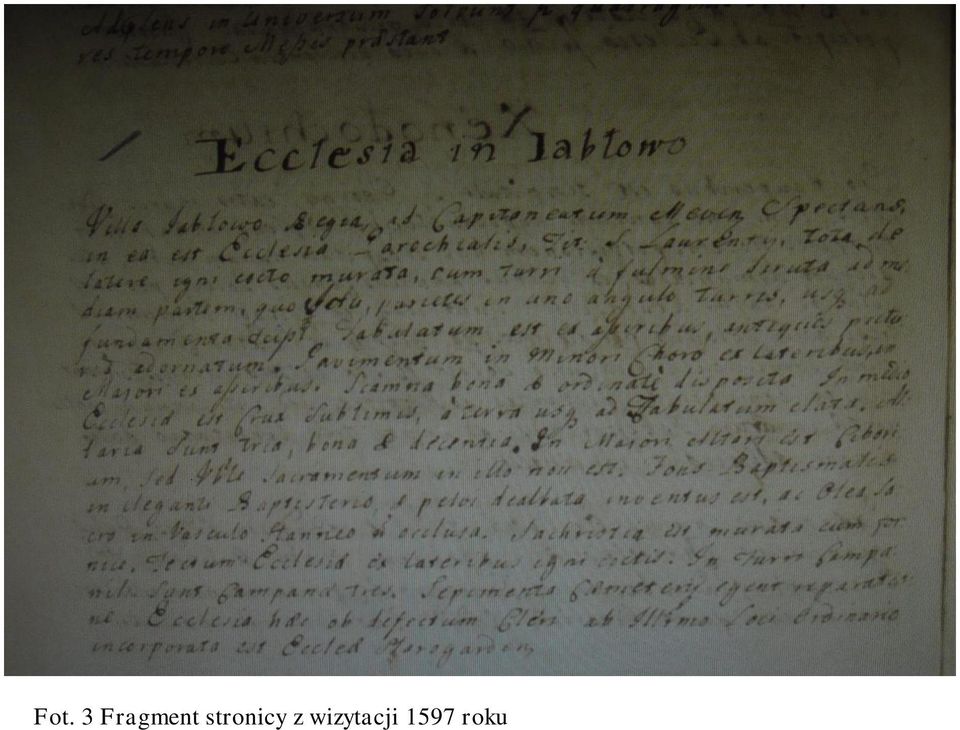 in Universum solvunt
res tempore Messis præstant
Ecclesia in Iabłowo
Villa Iabłowo Regia, ad Capitaneatum Mevens, Spectans,
in ea est Ecclesia Parochialis, Tit: S. Laurentij, tota de
latere igni cocto murata, cum turri à fulmine diruta ad me
diam partem, quo ictu, parietes in uno angulo Turris, usq ad
fundamenta Tabulatum est ex asseribus, antiquis pictu
ris adornatum. Pavimentum in Minori Choro ex lateribus, in
Majori ex asseribus. Scamna bona & ordinatè disposita. In medio
Ecclesia est Crux Sublimis, à terra usq ad Tabulatum elata. Al
taria sunt tria, bona & decentia. In Maiori Altari est Cibori
um, sed Sacramentum in illo non est. Fons Baptismalis
in eleganti Baptisterio, & dealbata inventus est, ac Olea Sa
cra in Vasculo Stanneo Sachristia est murata cum for
nice. Tectum Ecclesia ex lateribus igni coctis. In Turri Campa
nili sunt Campana tres. Sepimenta Cæmeterij egent reparatio
ne. Ecclesia hæc ob defectum Cleri ab Illmo Loci Ordinario
incorporata est Starogarden
Fot. 3 Fragment stronicy z wizytacji 1597 roku